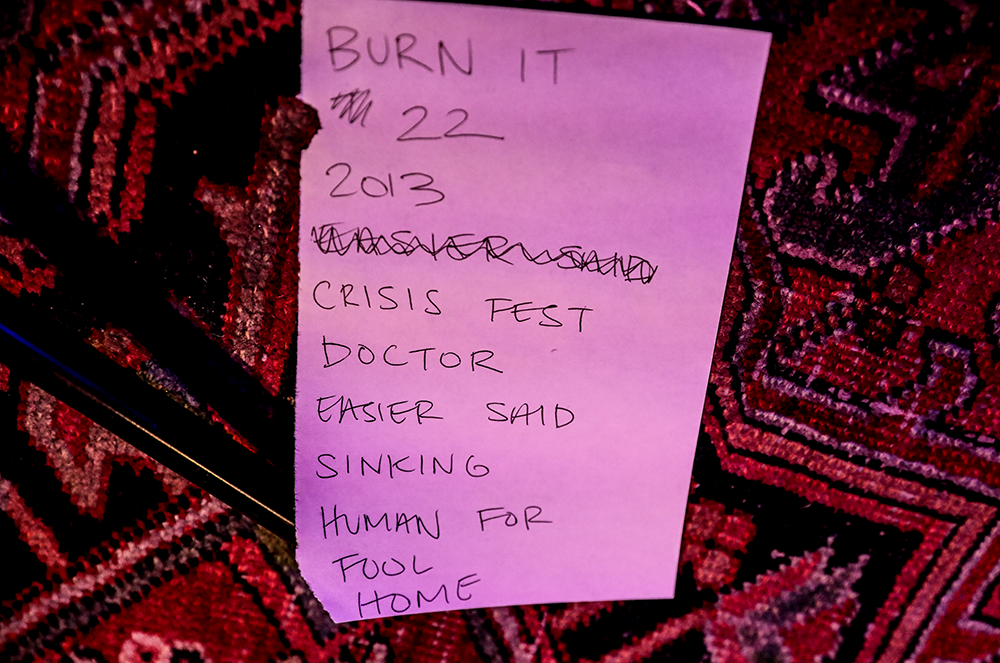 BURN IT
22
2013
EASIER SAID
CRISIS FEST
DOCTOR
EASIER SAID
SINKING
HUMAN FOR
FOOL
HOME